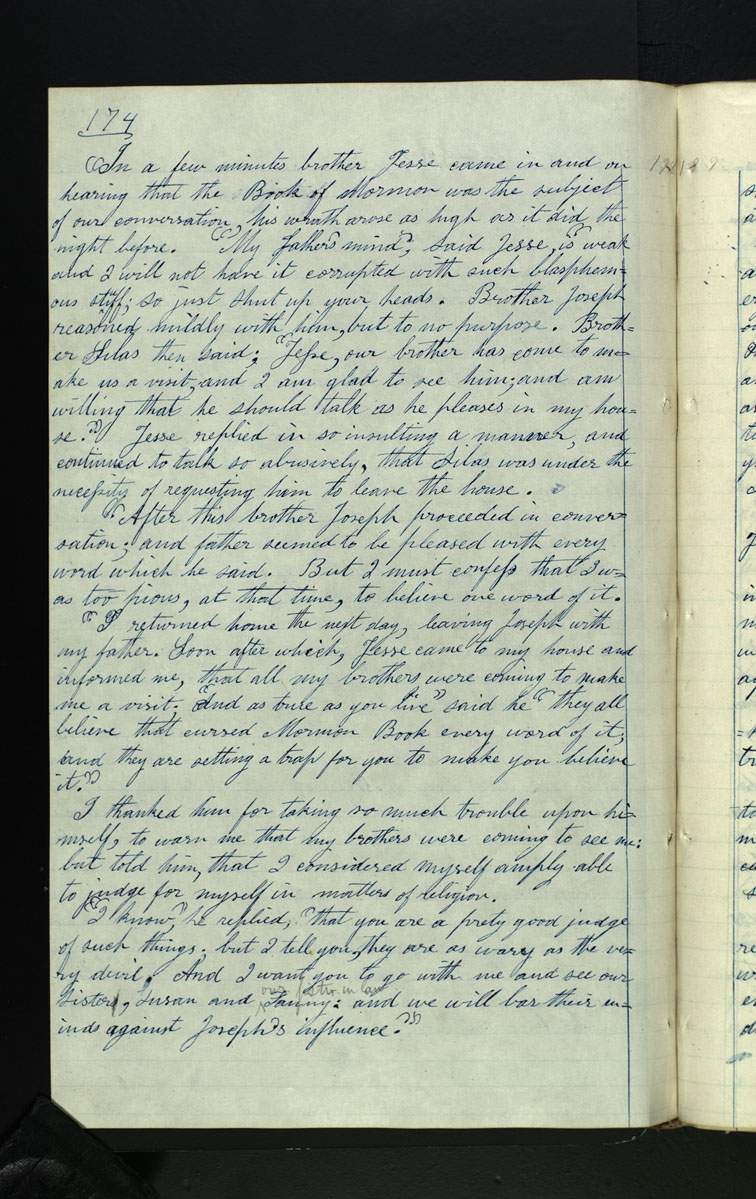 174
"In a few minutes brother Jesse came in and on
hearing that the Book of Mormon was the subject
of our conversation, his wrath arose as high as it did the
night before. "My father's mind", said Jesse, "is weak
and I will not have it corrupted with such blasphem=
ous stuff; so just shut up your heads. Brother Joseph
reasoned mildly with him, but to no purpose. Broth=
er Silas then said; "Jesse, our brother has come to m=
ake us a visit, and I am glad to see him; and am
willing that he should talk as he pleases in my hou=
se." Jesse replied in so insulting a manner, and
continued to talk so abusively, that Silas was under the
necessity of requesting him to leave the house.
"After this brother Joseph proceeded in conver=
sation; and father seemed to be pleased with every
word which he said. But I must confess that I w=
as too pious, at that time, to believe one word of it.
"I returned home the next day, leaving Joseph with
my father. Soon after which, Jesse came to my house and
informed me, that all my brothers were coming to make
me a visit. "And as ture as you live" said he "they all
believe that cursed Mormon Book every word of it;
and they are setting a trap for you to make you believe
it."
I thanked him for taking so much trouble upon hi=
mself, to warn me that my brothers were coming to see me;
but told him, that I considered myself amply able
to judge for myself in matters of religion.
"I know", he replied, "that you are a prety good judge
of such things. but I tell you, they are as wary as the ve=
ry devil. And I want you to go with me and see our
our sister in law
sister, Susan and Fanny; and we will bar their m=
inds against Joseph's influence."